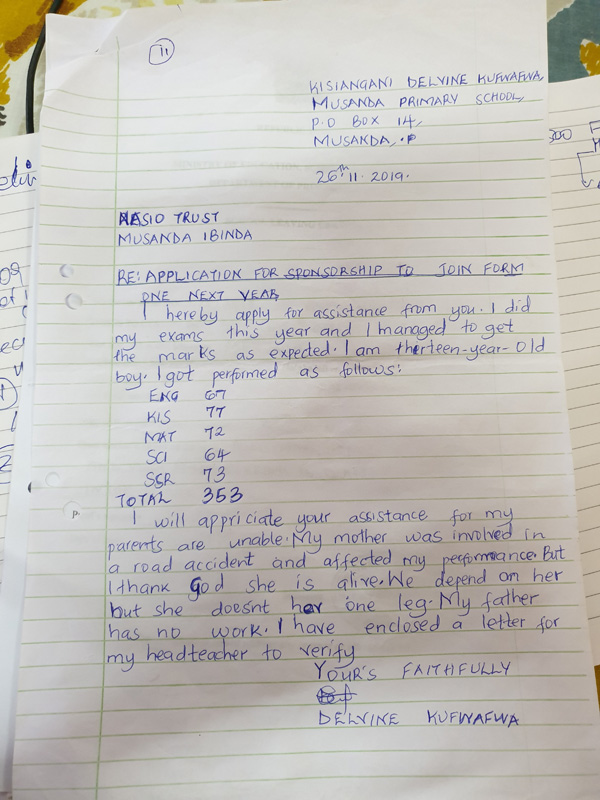 11
KISIANGANI DELVINE KUFWAFWA,
MUSANDA PRIMARY SCHOOL,
P.O BOX 14,
MUSANDA,
26th.11.2019.
NASIO TRUST
MUSANDA IBINDA
RE: APPLICATION FOR SPONSORSHIP TO JOIN FORM
ONE NEXT YEAR
I hereby apply for assistance from you. I did
my exams this year and I managed to get
the marks as expected. I am therteen-year-old
boy. I got performed as follows:
ENG 67
KIS 77
MAT 72
SCI 64
SSR 73
TOTAL 353
I will appriciate your assistance for my
parents are unable. My mother was involved in
a road accident and affected my performance. But
I thank god she is alive. We depend on her
but she doesnt her one leg. My father
has no work. I have enclosed a letter for
my headteacher to verify
YOUR'S FAITHFULLY
DELVINE KUFWAFWA
300